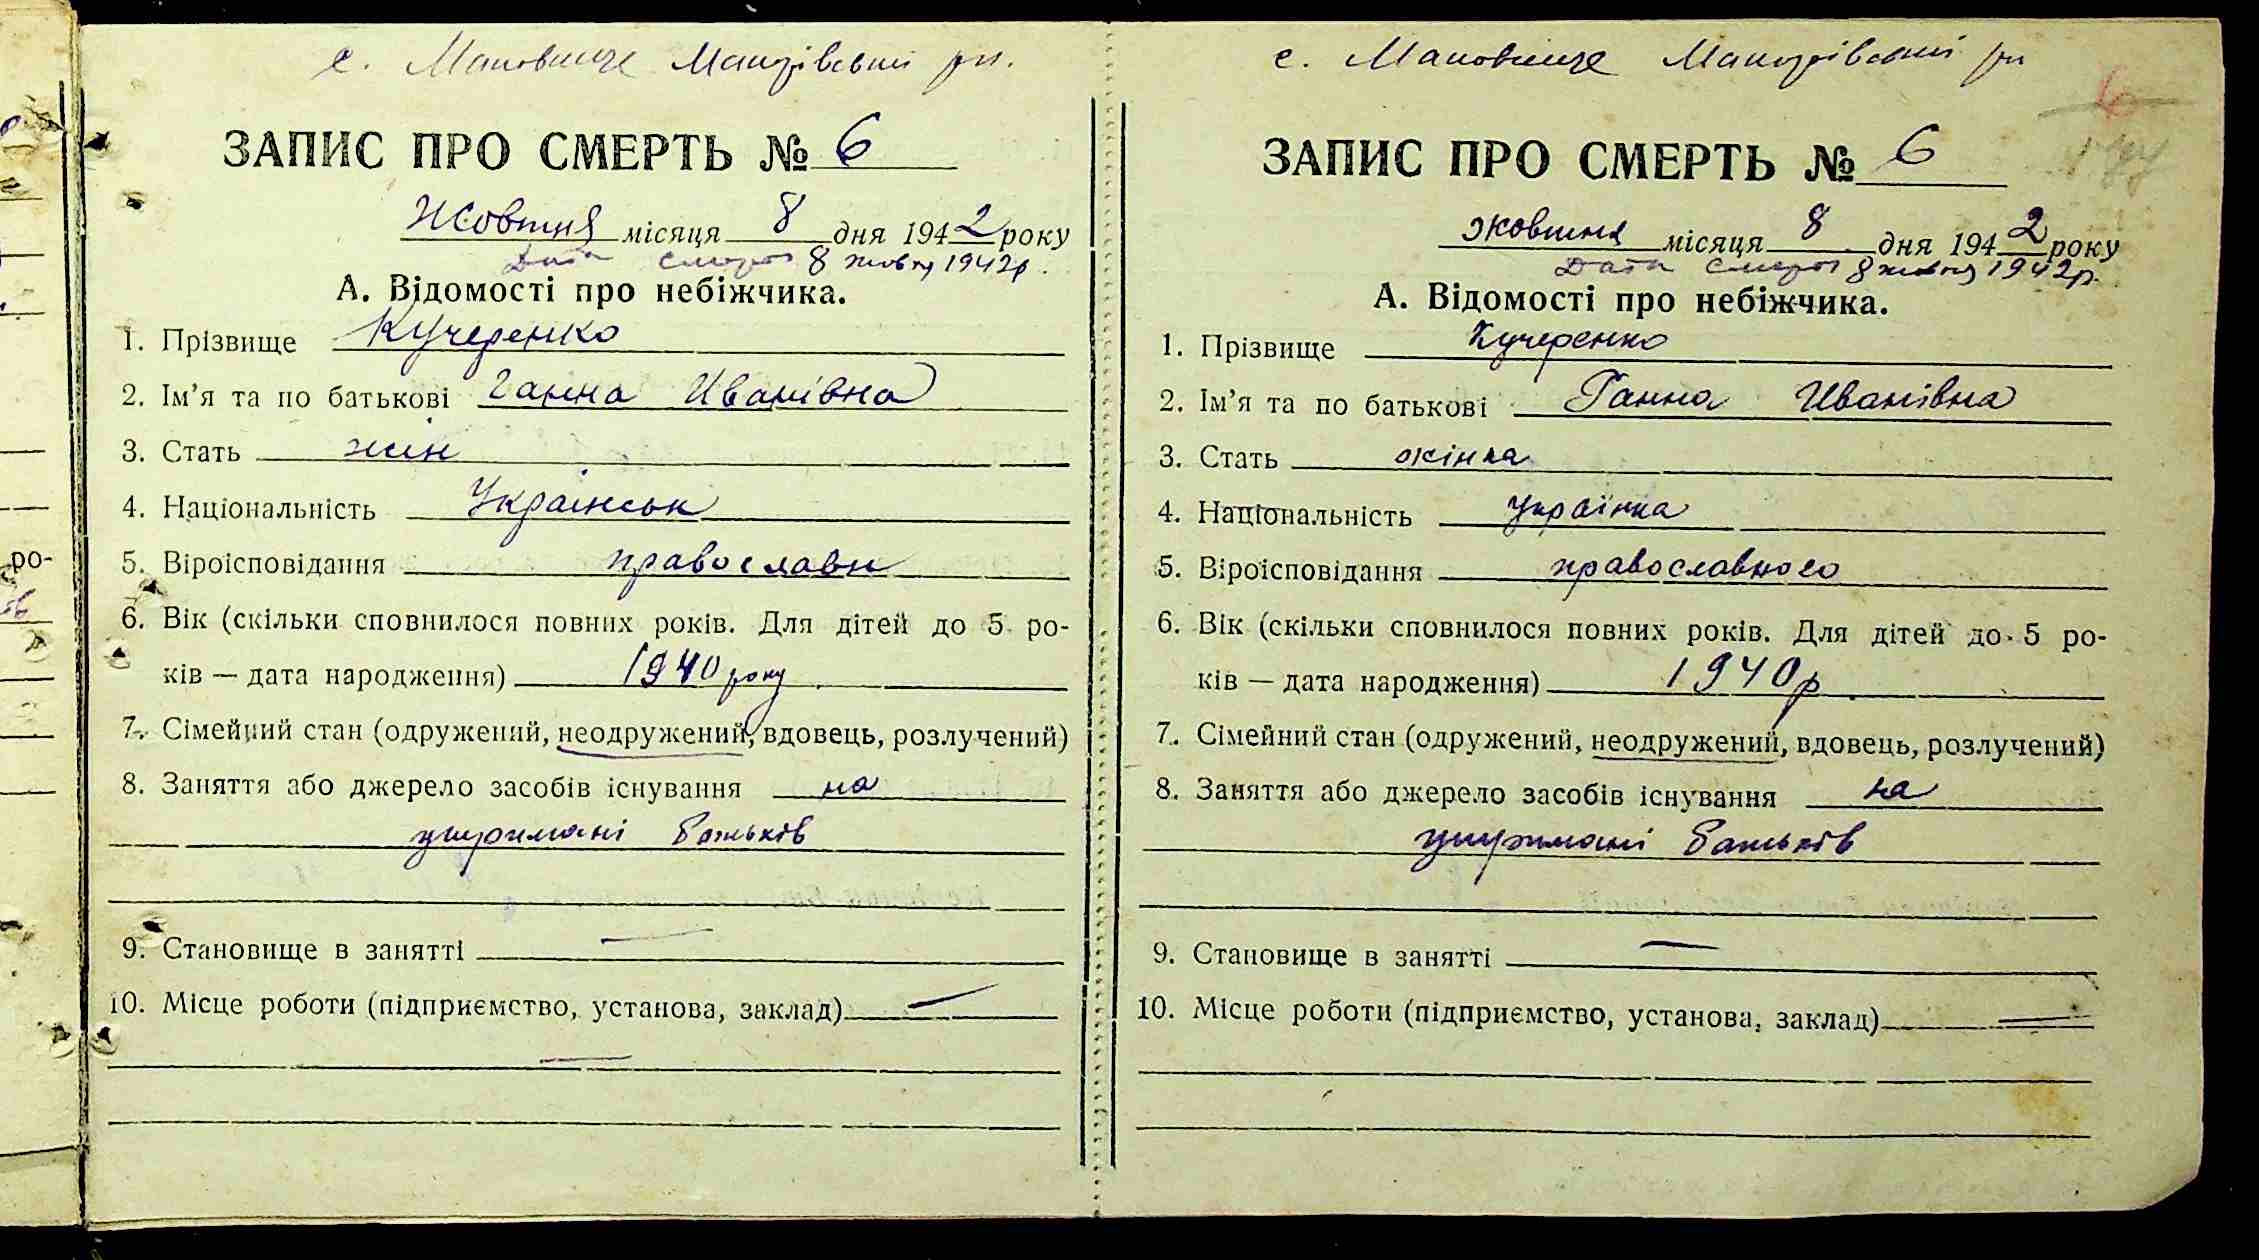 с. Маковище Макарівський рн.
ЗАПИС ПРО СМЕРТЬ № 6
Жовтня місяця 8 дня 1942 року
Дата смерті 8 жовтн 1942р.
А. Відомості про небіжчика.
1. Прізвище Кучеренко
2. Ім'я та по батькові Ганна Иванівна
3. Стать жін
4. Національність Українськ
5. Віроісповідання православн
6. Вік (скільки сповнилося повних років. Для дітей до 5 ро-
ків — дата народження) 1940 року
7. Сімейний стан (одружений, неодружений, вдовець, розлучений)
8. Заняття або джерело засобів існування на
утримані батьків
9. Становище в занятті —
10. Місце роботи (підприємство, установа, заклад) —
—
с. Маковище Макарівський рн
ЗАПИС ПРО СМЕРТЬ № 6
жовтня місяця 8 дня 1942 року
Дата смерті 8 жовтн 1942р.
А. Відомості про небіжчика.
1. Прізвище Кучеренко
2. Ім'я та по батькові Ганна Иванівна
3. Стать жінка
4. Національність українка
5. Віроісповідання православного
6. Вік (скільки сповнилося повних років. Для дітей до 5 ро-
ків — дата народження) 1940р
7. Сімейний стан (одружений, неодружений, вдовець, розлучений)
8. Заняття або джерело засобів існування на
утримані батьків
9. Становище в занятті —
10. Місце роботи (підприємство, установа, заклад) —
ро-